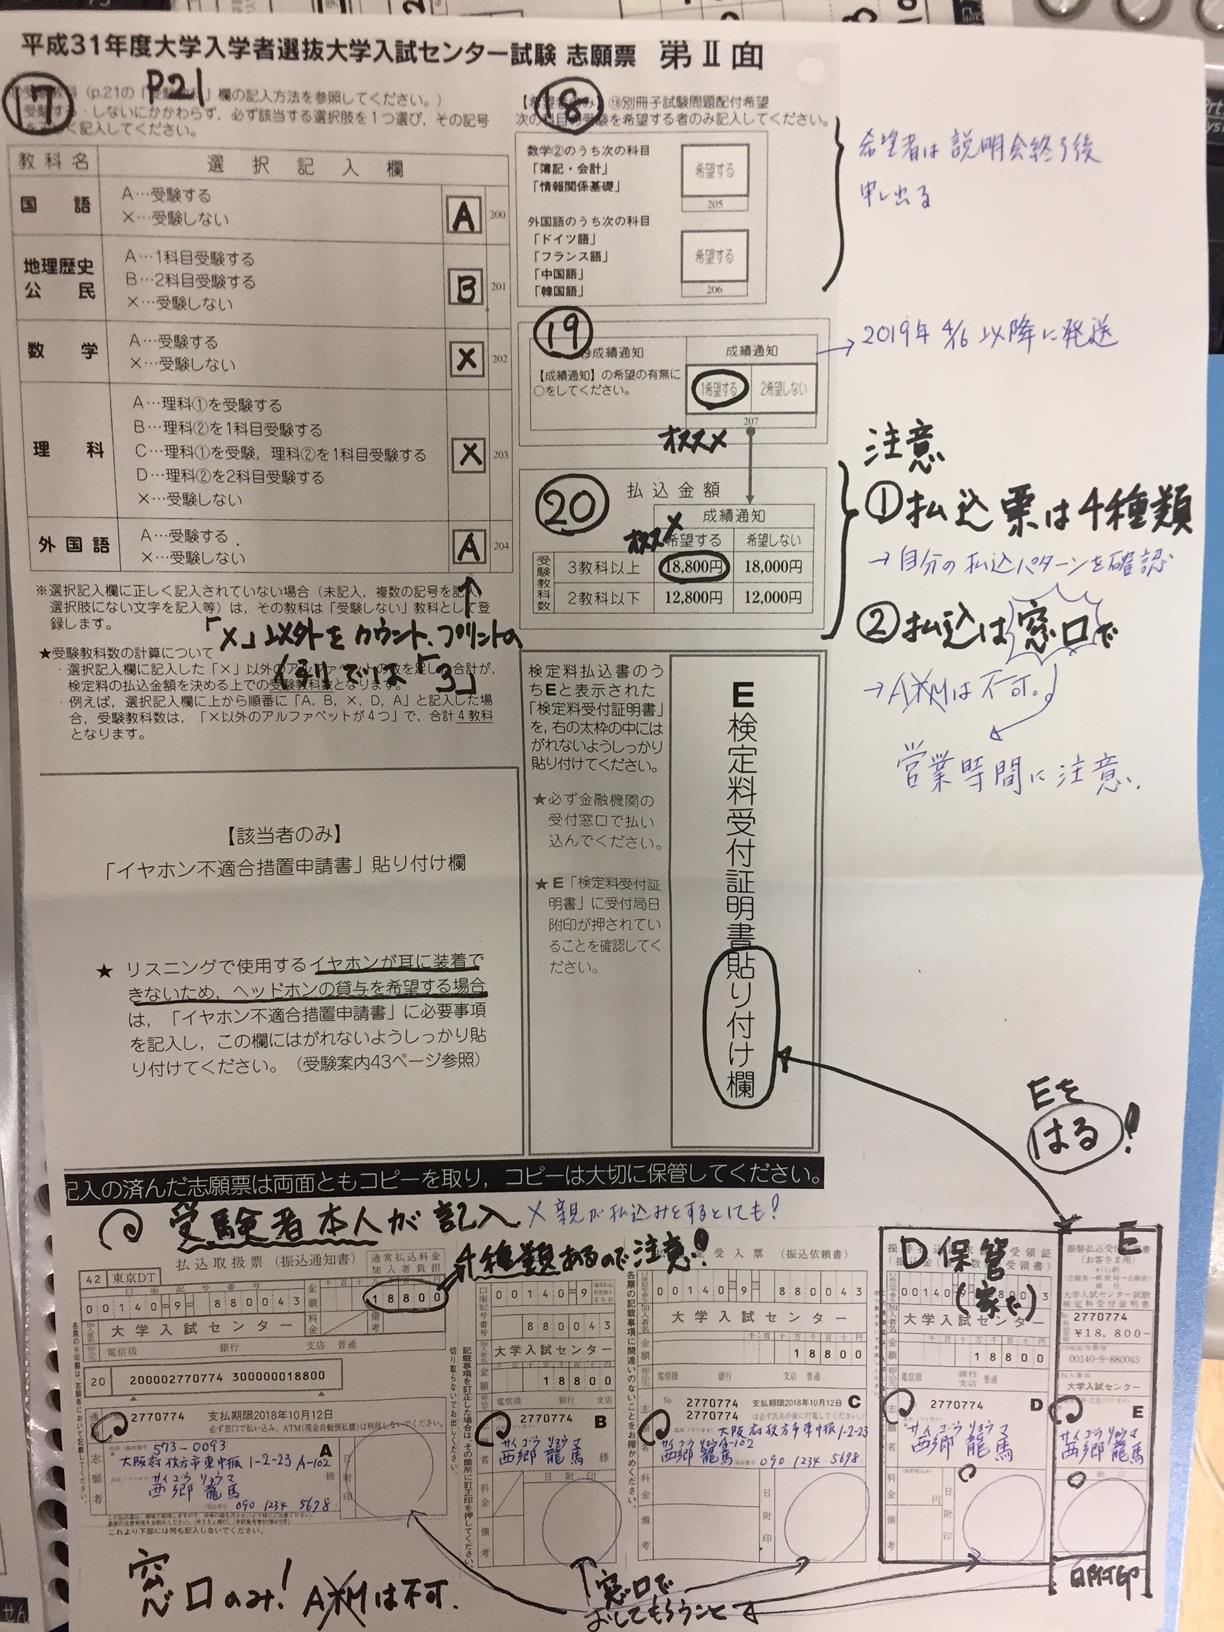 平成31年度大学入学者選抜大学入試センター試験 志願票 第Ⅱ面
⑰ P21
(p.21の「受験教科」欄の記入方法を参照してください。)
受験する・しないにかかわらず，必ず該当する選択肢を1つ選び，その記号
記入してください。
教科名 選択記入欄
国語 A…受験する
×…受験しない A 200
地理歴史 公民 A…1科目受験する
B…2科目受験する
×…受験しない B 201
数学 A…受験する
×…受験しない × 202
理科 A…理科①を受験する
B…理科②を1科目受験する
C…理科①を受験，理科②を1科目受験する
D…理科②を2科目受験する
×…受験しない × 203
外国語 A…受験する
×…受験しない A 204
※選択記入欄に正しく記入されていない場合（未記入，複数の記号を記入，
選択肢にない文字を記入等）は，その教科は「受験しない」教科として登
録します。
「×」以外をカウント、プリントの
例では「3」
★受験教科数の計算について
・選択記入欄に記入した「×」以外のアルファベットの数を足した合計が，
検定料の払込金額を決める上での受験教科数となります。
・例えば，選択記入欄に上から順番に「A，B，×，D，A」と記入した場
合，受験教科数は，「×以外のアルファベットが4つ」で，合計4教科
となります。
⑱
⑱別冊子試験問題配付希望
次の科目の受験を希望する者のみ記入してください。
数学②のうち次の科目
「簿記・会計」
「情報関係基礎」
希望する
205
外国語のうち次の科目
「ドイツ語」
「フランス語」
「中国語」
「韓国語」
希望する
206
希望者は説明会終了後
申し出る
⑲
成績通知 成績通知
【成績通知】の希望の有無に
○をしてください。
1希望する 2希望しない
207
オススメ
2019年 4/16 以降に発送
⑳ 払込金額
成績通知
オススメ
希望する 希望しない
受験教科数
3教科以上 18,800円 18,000円
2教科以下 12,800円 12,000円
注意
①払込票は4種類
→自分の払込パターンを確認
②払込は窓口で
→ATMは不可。
営業時間に注意。
検定料払込書のう
ちEと表示された
「検定料受付証明書」
を，右の太枠の中には
がれないようしっかり
貼り付けてください。
★必ず金融機関の
受付窓口で払い
込んでください。
★E「検定料受付証
明書」に受付局日
附印が押されてい
ることを確認してく
ださい。
E検定料受付証明書貼り付け欄
【該当者のみ】
「イヤホン不適合措置申請書」貼り付け欄
★ リスニングで使用するイヤホンが耳に装着で
きないため，ヘッドホンの貸与を希望する場合
は，「イヤホン不適合措置申請書」に必要事項
を記入し，この欄にはがれないようしっかり貼
り付けてください。（受験案内43ページ参照）
Eを
はる！
記入の済んだ志願票は両面ともコピーを取り，コピーは大切に保管してください。
受験者本人が記入 ×親が払込みをするとしても！
4種類あるので注意！
払込取扱票（振込通知書）
通常払込料金
加入者負担
42 東京DT
00140-9-880043
18800
大学入試センター
電信扱 銀行 支店 普通
20 200002770774 300000018800
2770774 支払期限2018年10月12日
必ず窓口で払い込み，ATM(現金自動預払機)は利用しないでください。
573-0093
大阪府枚方市東中振1-2-23 A-102
サイゴウ リョウマ
西郷 龍馬
090 1234 5678
A
これより下部には何も記入しないでください。
00140-9
880043
大学入試センター
18800
電信扱 銀行 支店
2770774
B
サイゴウ リョウマ
西郷 龍馬 様
料金 備考 日附印
受入票（振込依頼書）
00140-9-880043
大学入試センター
18800
電信扱 銀行 支店 普通
2770774 支払期限2018年10月12日 C
2770774
大阪府枚方市東中振1-2-23
A-102
サイゴウ リョウマ
西郷 龍馬 090 1234 5678
料金 備考 日附印
D 保管
（家で）
大学入試センター
18800
電信扱 銀行 支店 普通
2770774 D
サイゴウ リョウマ
西郷 龍馬 様
料金 円 備考 日附印
E
（お客さま用）
大学入試センター試験
検定料受付証明書
2770774
¥18,800-
00140-9-880043
大学入試センター
2770774
E
サイゴウ リョウマ
西郷 龍馬 様
日附印
窓口のみ！ ATMは不可.
窓口で
おしてもらうこと
せん